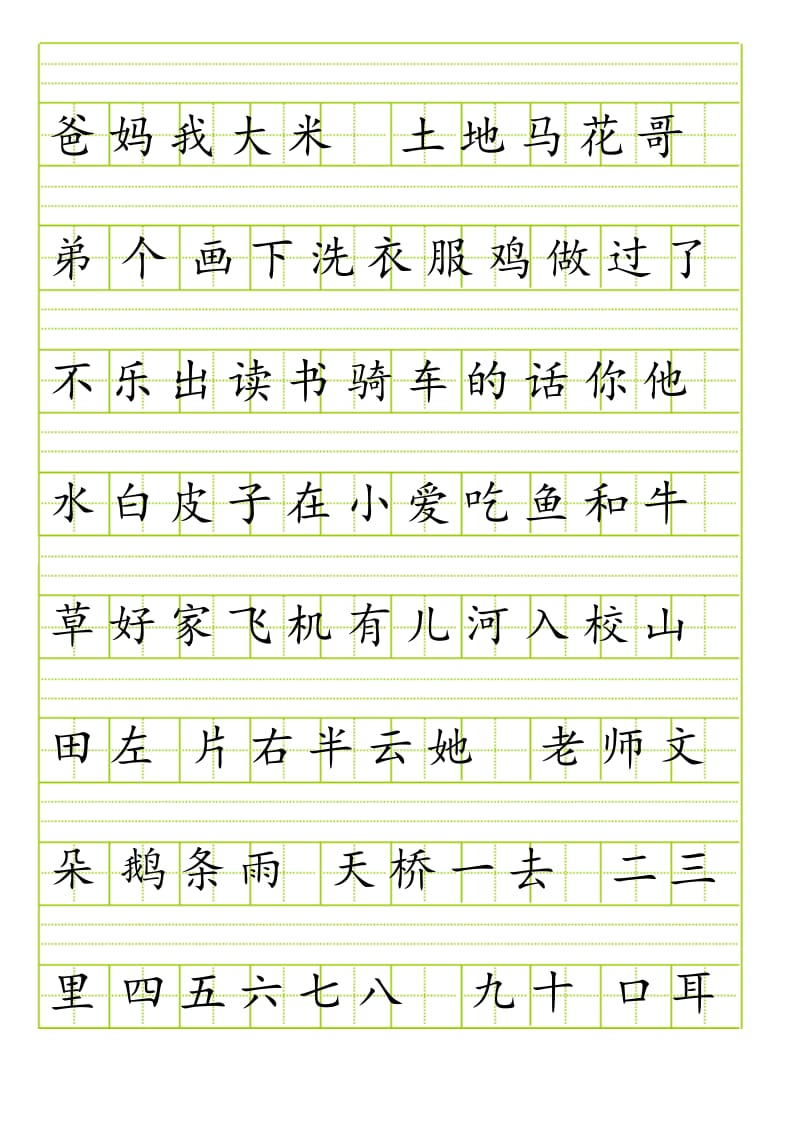 爸妈我大米 土地马花哥
弟 个 画下洗衣服鸡做过了
不乐出读书骑车的话你他
水白皮子在小爱吃鱼和牛
草好家飞机有儿河入校山
田左 片右半云她 老师文
朵 鹅条雨 天桥一去 二三
里 四五六七八 九十 口耳